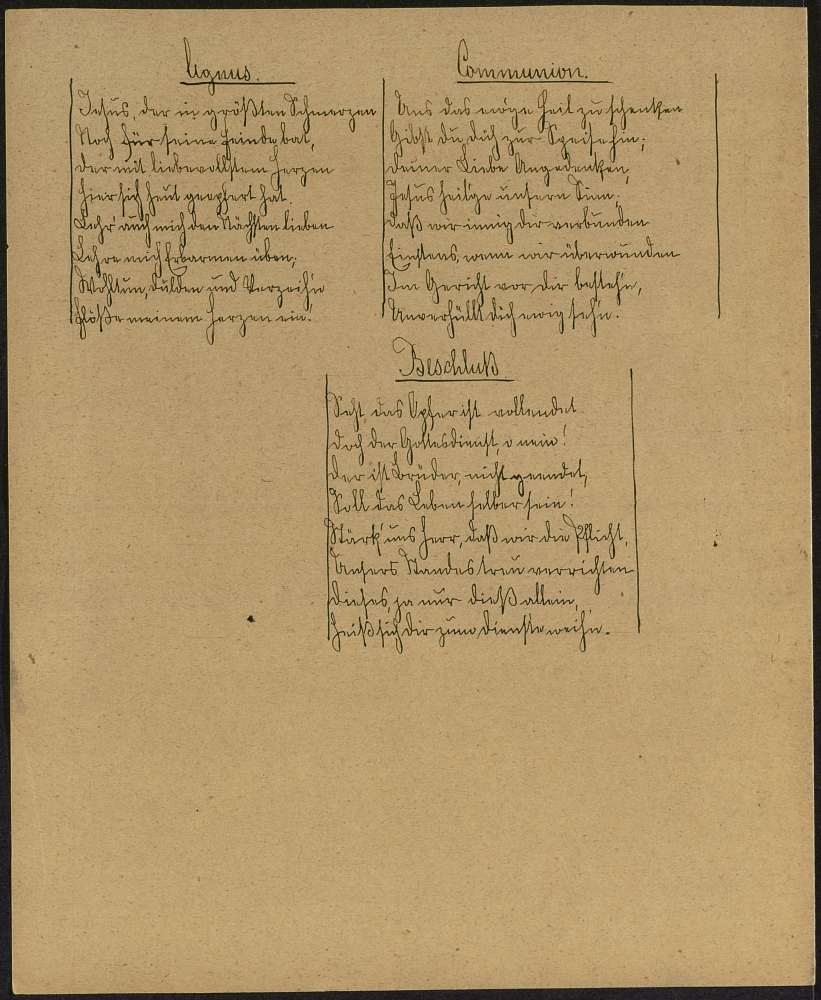 Agnus.
Jesus, der in größten Schmerzen
Noch für seine Feinde bat,
Der mit liebevollstem Herzen
Hier sich heut geopfert hat.
Lehr' auch mich den Nächsten lieben
Lehre mich Erbarmen üben;
Wohltun, Dulden und Verzeih'n
Flöße meinem Herzen ein!
Communion.
Uns das ewge Heil zu schenken
Gibst Du Dich zur Speise hin;
Deiner Liebe Angedenken,
Jesus heil'ge unsern Sinn;
Daß wir innig dir verbunden
Einstens, wenn wir überwunden
Im Gericht vor Dir besteh'n,
Unverhüllt Dich ewig seh'n.
Beschluß.
Seht, das Opfer ist vollendet
Doch der Gottesdienst, o nein!
Der ist Brüder, nicht geendet,
Soll das Leben selber sein!
Stärk' uns Herr, daß wir die Pflicht,
Unsers Standes treu verrichten
Dieses, ja nur dieß allein,
Heißt sich Dir zum Dienste weih'n.